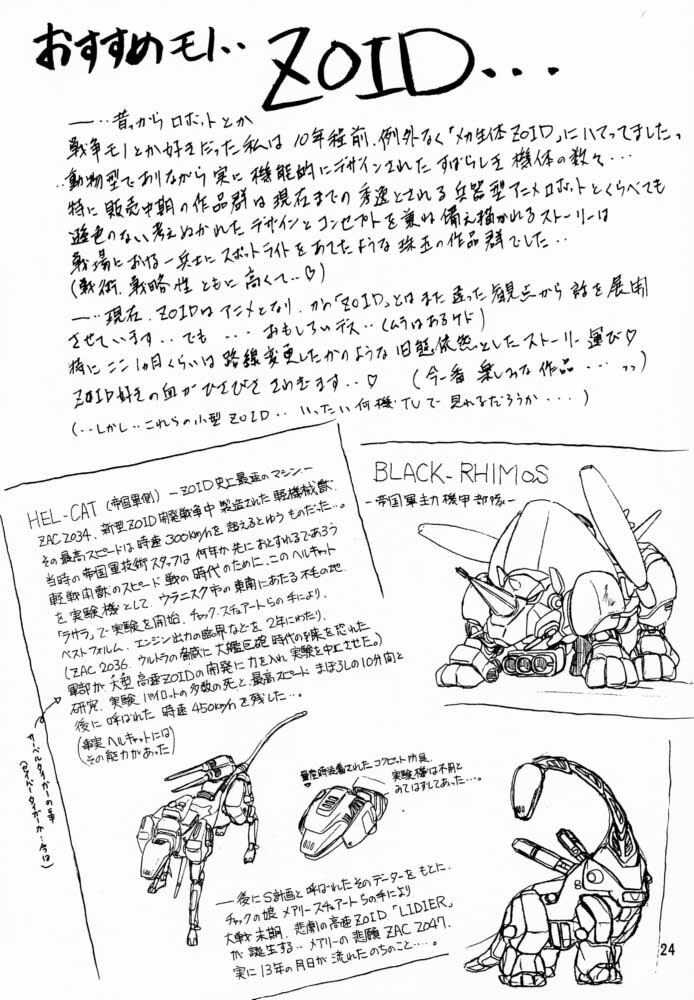 おすすめモノ‥ ZOID...
―‥昔っから ロボットとか
戦争モノとか好きだった私は 10年程前、例外なく「メカ生体ZOID」にハマってましたっ
‥動物型でありながら実に機能的にデザインされたすばらしき機体の数々…
特に販売中期の作品群は現在までの秀逸とされる兵器型アニメロボットとくらべても
遜色のない考えぬかれたデザインとコンセプトを兼ね備え描かれるストーリーは
戦場における一兵士にスポットライトをあてたような珠玉の作品群でした‥
(戦術、戦略性ともに高くて‥♡)
―‥現在、ZOIDはアニメとなり、かの「ZOID」とはまた違った観点から話を展開
させています‥でも …おもしろいデス‥(ムラはあるケド)
特にここ1ヵ月くらいは路線変更したかのような旧態依然としたストーリー運び♡
ZOID好きの血がひさびさ さわぎます‥♡ (今一番楽しみな作品…っっ)
(‥しかし‥これらの小型ZOID‥いったい何機TVで見れるだろうか…)
HEL-CAT (帝国軍側) ―ZOID史上最速のマシン―
ZAC2034、新型ZOID開発戦争中製造された軽機械獣、
その最高スピードは時速300km/hを超えるとゆうものだった…。
当時の帝国軍技術スタッフは何年か先におとずれるであろう
軽戦闘獣のスピード戦の時代のために、このヘルキャット
を実験機として、ウラニスク市の東南にあたる不毛の地、
「ラサラ」で実験を開始、チャック・スチュアートらの手により、
ベストフォルム、エンジン出力の臨界などを2年にわたり、
(ZAC2036、ウルトラの脅威に大艦巨砲時代の到来を恐れた
軍部が、大型高速ZOIDの開発に力を入れ実験を中止させた。)
研究、実験パイロットの多数の死と、最高スピードまぼろしの10分間と
後に呼ばれた時速450km/hを残した…。
(事実ヘルキャットには
その能力があった)
サーベルタイガーの事
(セイバータイガーか…今は)
BLACK-RHIMOS
―帝国軍主力機甲部隊―
量産時装着されたコクピット防具、
実験機は不用と
みてはずしてあった…。
―後にS計画と呼ばれたそのデーターをもとに、
チャックの娘 メアリースチュアートらの手により
大戦末期、悲劇の高速ZOID「LIDIER」
が誕生する‥メアリーの悲願ZAC2047、
実に13年の月日が流れたのちのこと…。
24